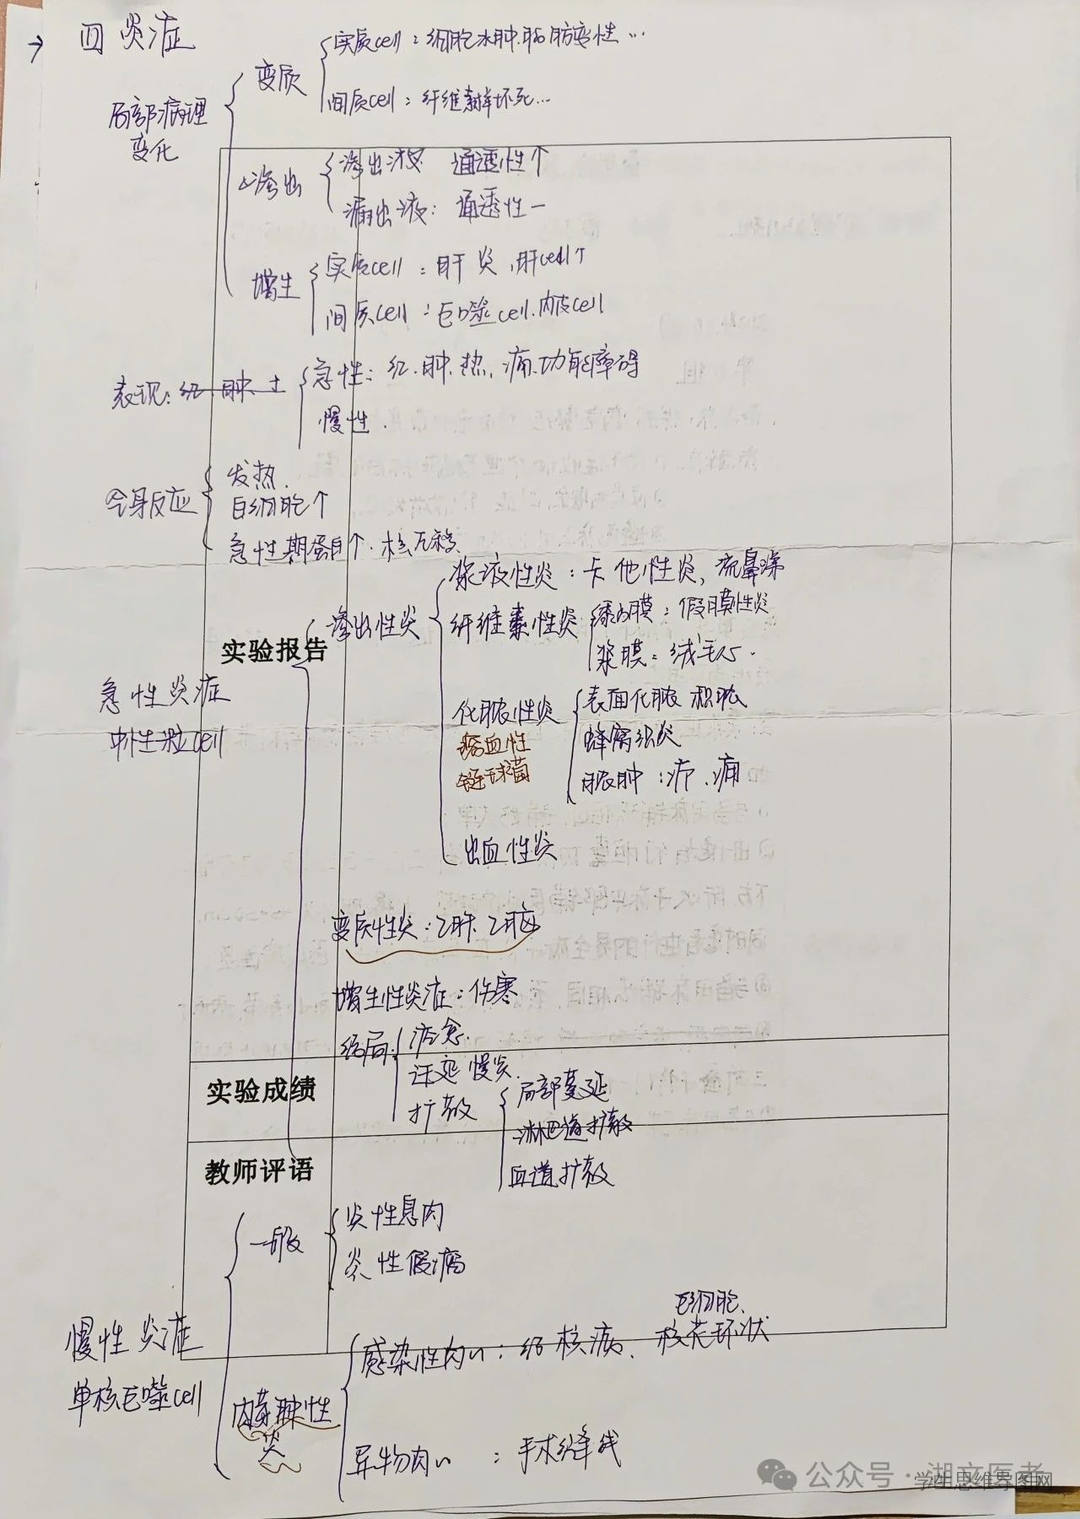 四 炎症
局部病理
变化
变质
实质cell：细胞水肿.脂肪变性…
间质cell：纤维素样坏死…
△渗出
渗出液 通透性↑
漏出液：通透性一
增生
实质cell：肝炎,肝cell↑
间质cell：巨噬cell.内皮cell
表现：红.肿.
急性：红.肿.热.痛.功能障碍
慢性.
全身反应
发热.
白细胞个
急性期蛋白个.核左移.
实验报告
急性炎症
中性粒cell
渗出性炎
浆液性炎：卡他性炎,流鼻涕
纤维素性炎
黏膜：假膜性炎
浆膜：绒毛心.
化脓性炎
溶血性
链球菌
表面化脓 积脓
蜂窝织炎
脓肿：疖.痈
出血性炎
变质性炎：乙肝.乙脑
增生性炎症：伤寒
结局：
痊愈.
迁延慢炎.
扩散
局部蔓延
淋巴道扩散
血道扩散
实验成绩
教师评语
慢性炎症
单核巨噬cell
一般
炎性息肉
炎性假瘤
肉芽肿性
炎
感染性肉〃：结核病.
巨细胞.
核花环状
异物肉〃：手术缝线
公众号·湖文医考
学生思维导图网